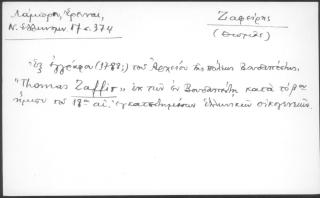 Λάμπρου, Έρευναι,
Ν. Ἑλληνομν. 17 σ. 374
Ζαφείρης
(Θωμᾶς)
Ἐξ ἐγγράφου (1788;) τοῦ Ἀρχείου τῆς πόλεως Βουδαπέστης.
"Thomas Zaffir" ἐκ τῶν ἐν Βουδαπέστῃ κατὰ τὸ
τοῦ 18ου αἰ. ἐγκατεστημένων ἑλληνικῶν οἰκογενειῶν.